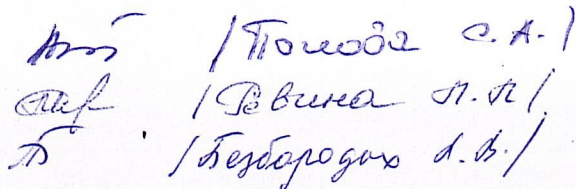 /Попова С.А./
/Ревина Л.П/
/Безбородых А.В./